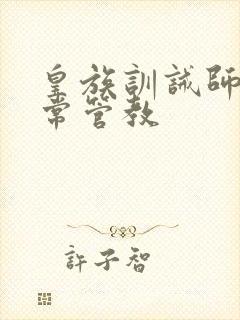 皇族訓誡師日
常管教
許子智